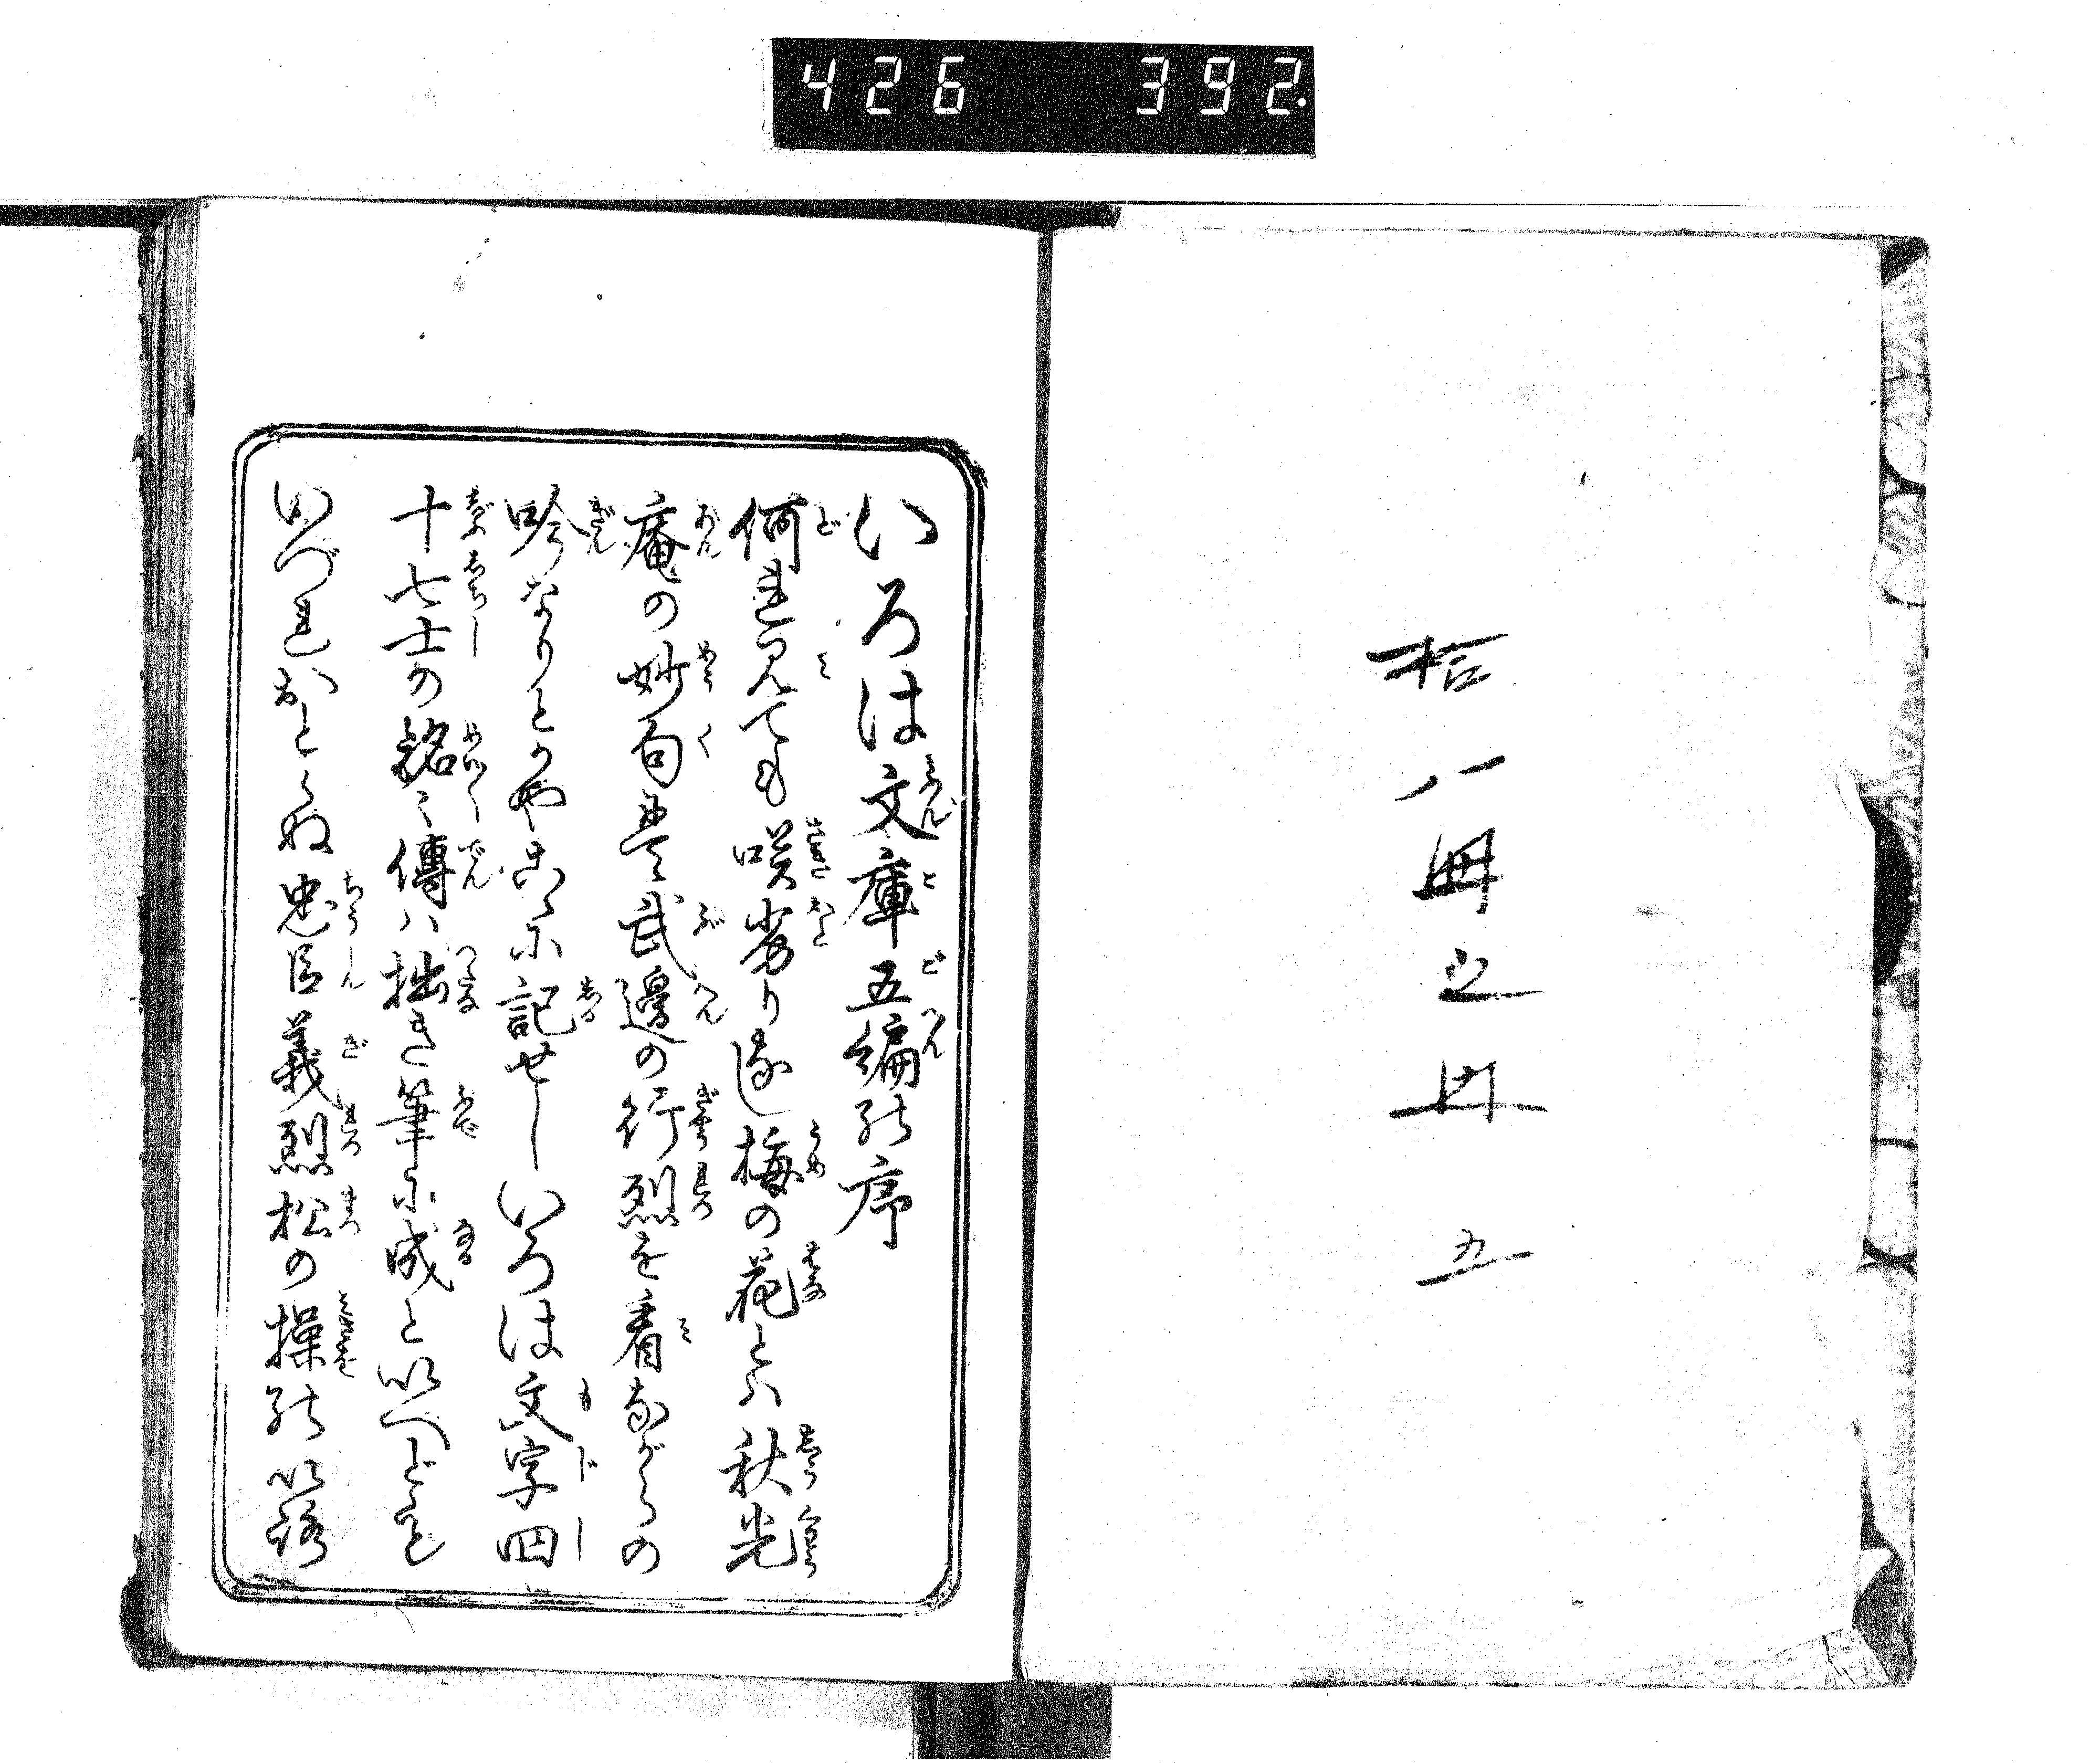 426 392.
拾八冊之内 五
いろは文庫五編の序
何れ見ても咲劣りなし梅の花とハ秋光
庵の妙句是武邉の行烈を看ながらの
吟なりとかやこゝに記せしいろは文字四
十七士の銘々傳ハ拙き筆に成といへども
いづれおとらぬ忠臣義烈松の操のいろ